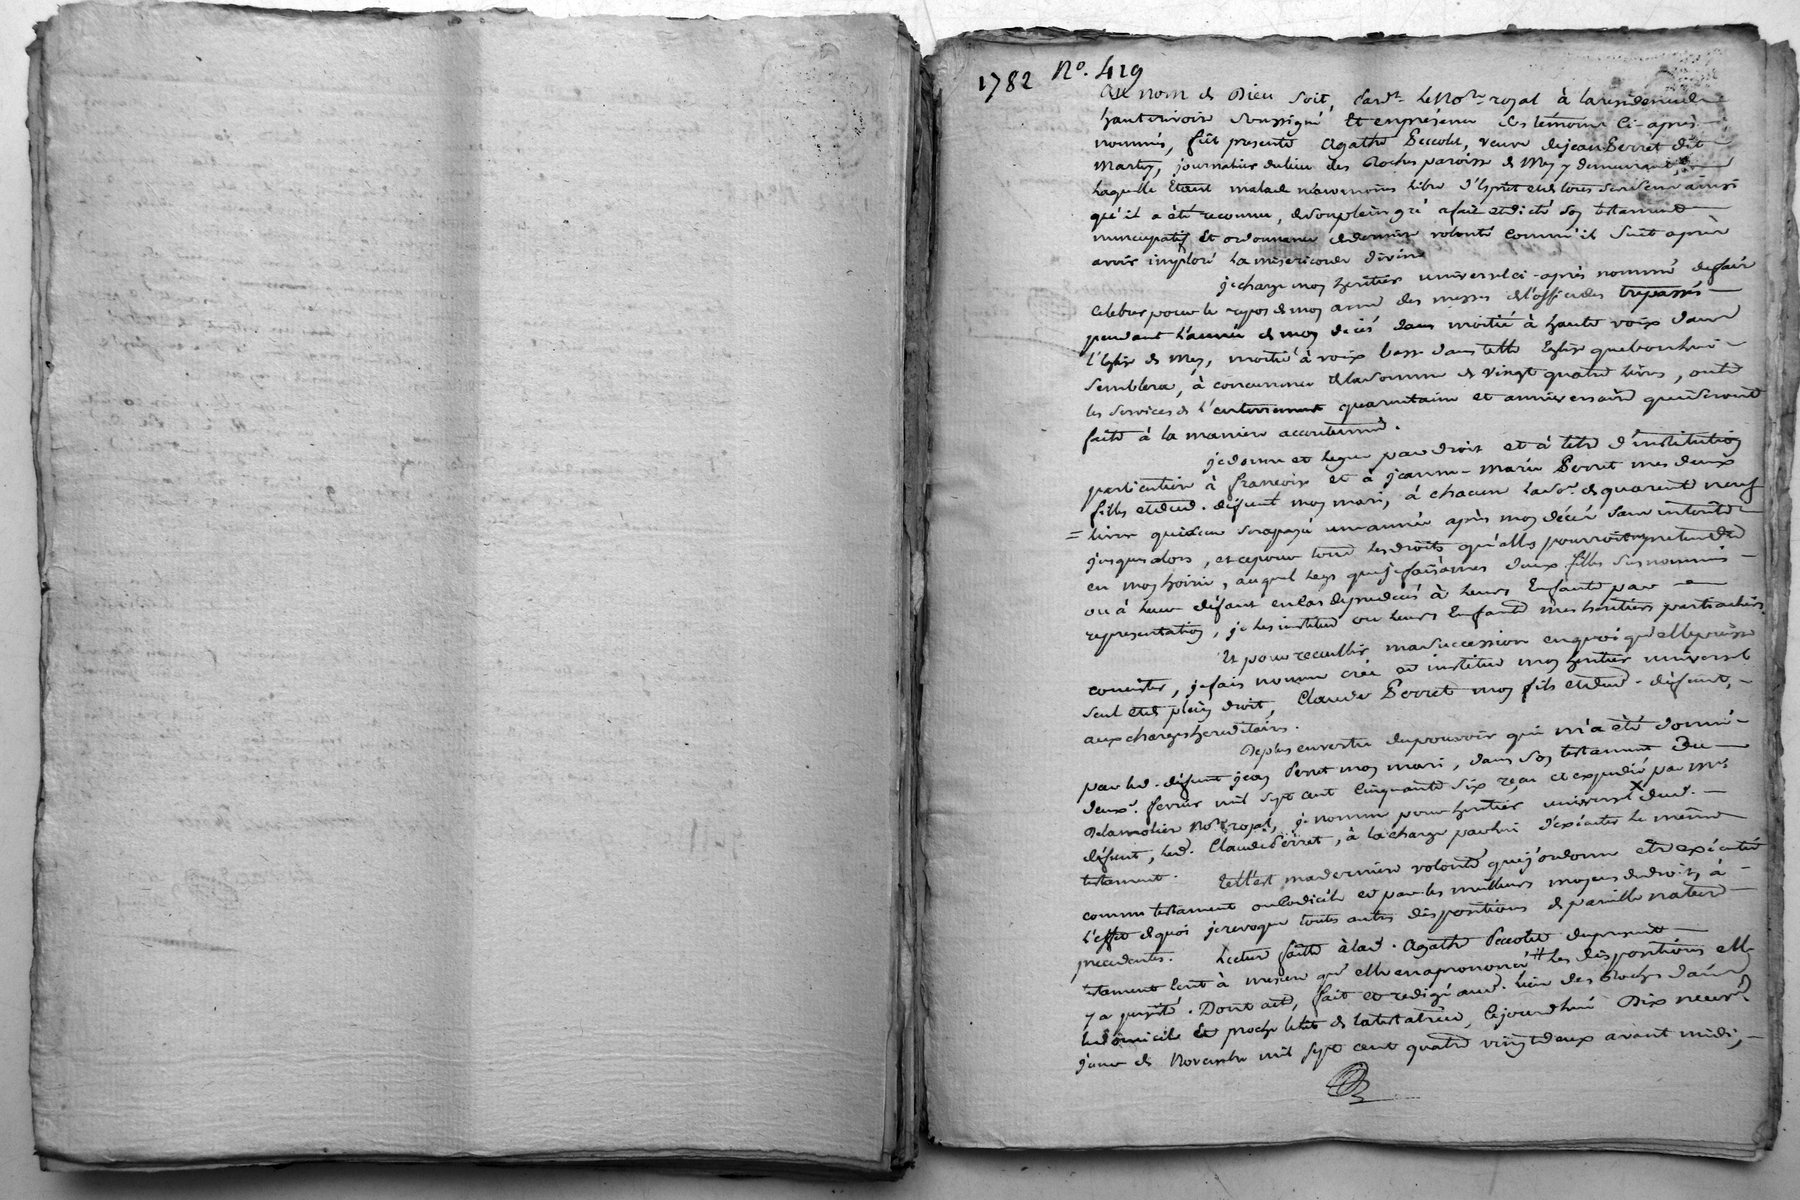 1782 No. 419
Au nom de Dieu soit, pard.t le No.re royal à la residence de
hauterivoire soussigné Et en presence des témoins ci-après
nommés, fût presente Agathe Peccolet, veuve de jean Perret dit
Martin, journalier du lieu des Roches paroisse de Mey y demeurant,
Laquelle Etant malade néanmoins libre d'Esprit et de tous ses sens ainsi
qu'il a été reconnu, de son plein gré a fait et dicté son testament
nuncupatif Et ordonnance de derniere volonté comm'il suit après
avoir imploré La misericorde divine
je charge mon heritier universel ci-après nommé de faire
celebrer pour le repos de mon ame des messes de l'office des trepassés
pendant L'année de mon decès dans moitié à haute voix dans
l'Eglise de Mey, moitié à voix basse dans telle Eglise que bon lui
semblera, à concurrence de la somme de vingt quatre livres, outre
les services de l'enterrement quarantaine et anniversaire qui seront
faits à la maniere accoutumée.
je donne et legue par droit et à titre d'institution
particuliere à francoise et à jeanne-Marie Perret mes deux
filles et dud. défunt mon mari, à chacune la so.e de quarante neuf
= livres qui sera payé une année après mon décès sans interets
jusques alors, et ce pour tous les droits qu'elles pourroient pretendre
en mon hoirie, auquel legs que je fais à mes deux filles susnommées
ou à leur défaut en cas de predecès à leurs Enfants par
representation, je les institue ou leurs Enfants mes heritiers particuliers.
Et pour recuillir ma succession en quoi qu'elle puisse
consister, je fais nomme crée et institue mon heritier universel
seul et de plein droit, Claude Perret mon fils et dud. défunt,
aux charges hereditaires.
De plus en vertu du pouvoir qui m'a été donné
par led. défunt jean Perret mon mari, dans son testament du
deux. fevrier mil sept cent Cinquante six reçu et expedié par M.e
Delamolier No.re royal, je nomme pour heritier universel dud.
défunt, led. Claude Perret, à la charge par lui d'exécuter le même
testament. Tell'est ma derniere volonté que j'ordonne etre exécutée
comme testament ou codicile et par les meilleurs moyens de droit, à
l'effet de quoi je revoque toutes autres dispositions de pareille nature
precedentes. Lecture faitte à lad. Agathe Peccolet du present
testament Ecrit à mesure qu'elle en a prononcé # les dispositions elle
y a persisté. Dont acte, fait et redigé aud. lieu des Roches dans
le domicile Et proche le lit de la testatrice, Cejourdhui Dix neuv.e
jour de Novembre mil sept cent quatre vingt deux avant midi,